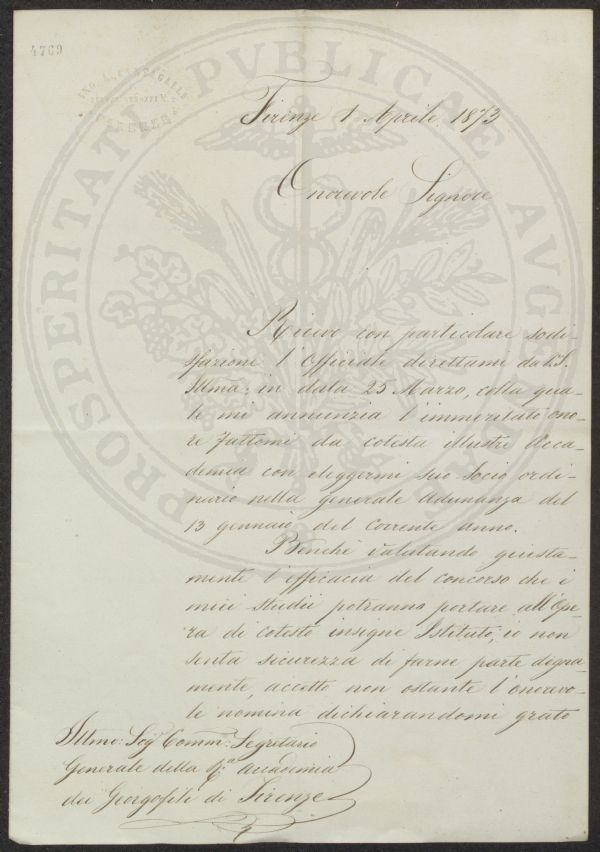 4769
ING. A. CANTAGALLI
FIRENZE
PROSPERITATI PVBLICAE AVGENDAE
Firenze 1 Aprile 1873
Onorevole Signore
Ricevo con particolare sodi-
sfazione l'Officiale direttami da V.S.
Illma: in data 25 Marzo, colla qua-
le mi annunzia l'immeritato ono-
re fattomi da cotesta illustre Acca-
demia con eleggermi suo Socio ordi-
nario nella generale Adunanza del
13 gennaio del corrente anno.
Benchè valutando giusta-
mente l'efficacia del concorso che i
miei studii potranno portare all'Ope-
ra di cotesto insigne Istituto, io non
senta sicurezza di farne parte degna-
mente, accetto non ostante l'onorevo-
le nomina dichiarandomi grato
Illmo: Sig Comm: Segretario
Generale della R.a Accademia
dei Georgofili di Firenze